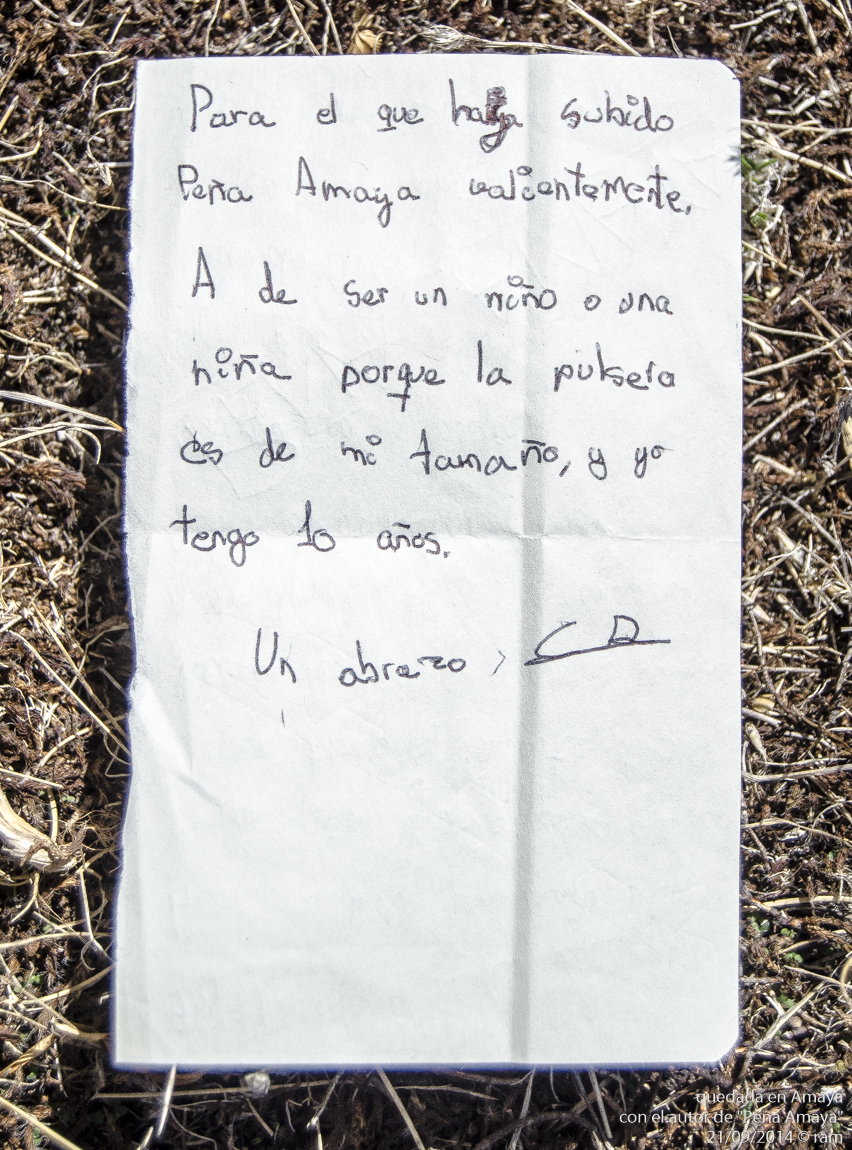 Para el que haya subido
Peña Amaya valientemente.
A de ser un niño o una
niña porque la pulsera
es de mi tamaño, y yo
tengo 10 años.
Un abrazo, CD
quedada en Amaya
con el autor de "Peña Amaya"
21/09/2014 © ram